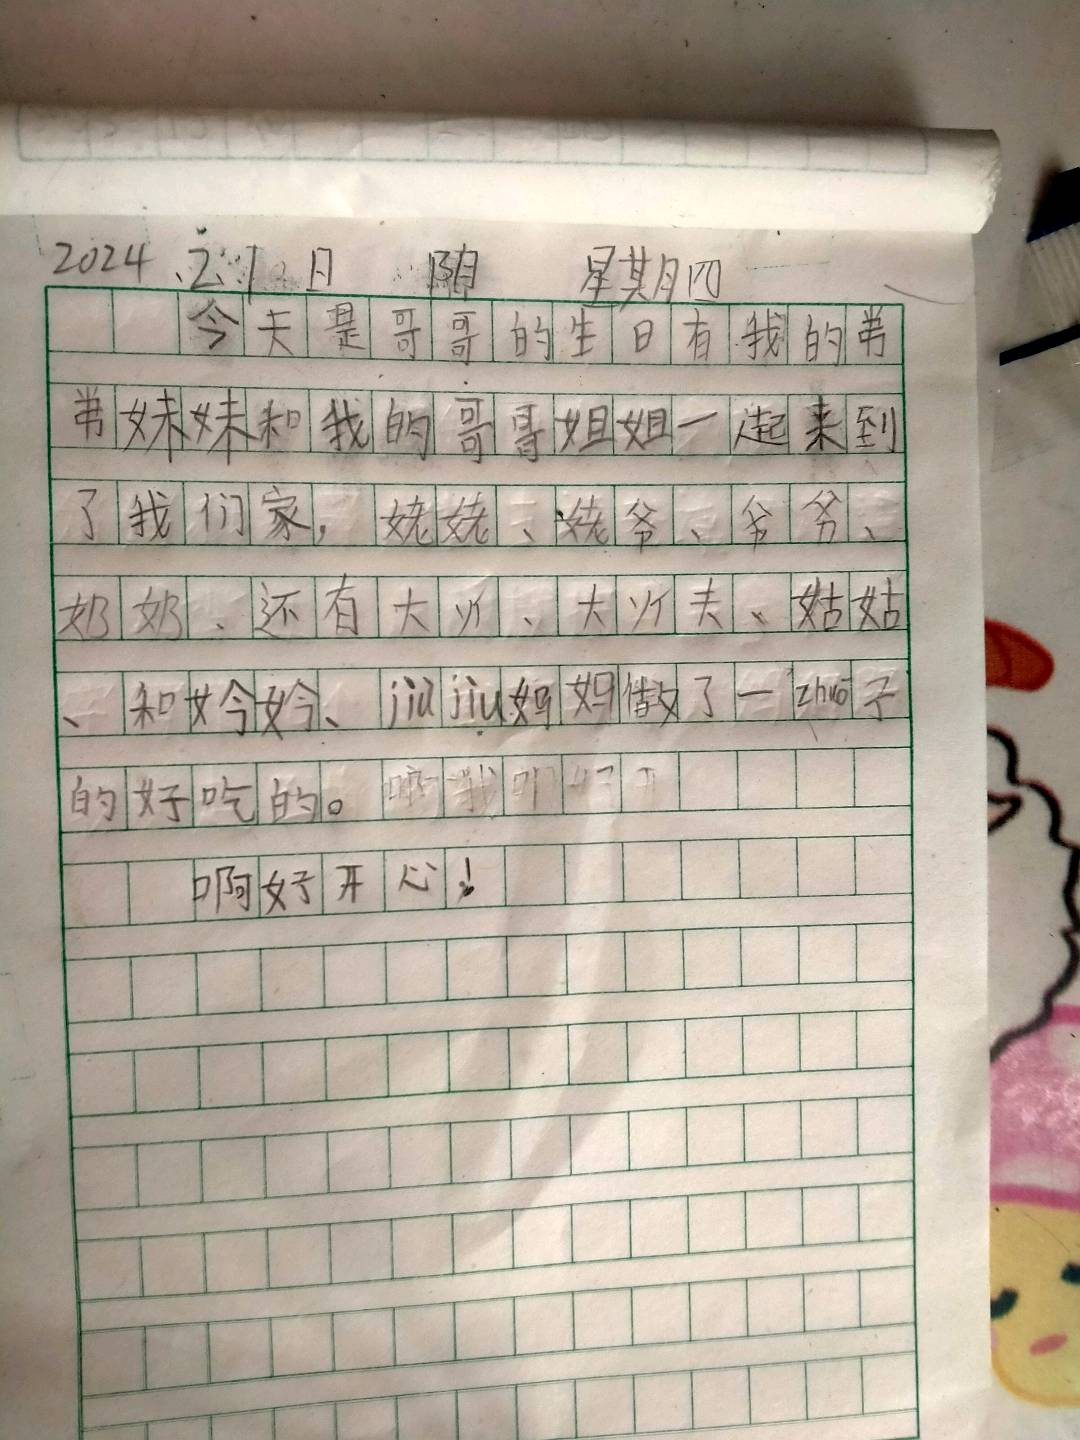 2024 2.1日 阴 星期四
今天是哥哥的生日有我的弟
弟妹妹和我的哥哥姐姐一起来到
了我们家,姥姥、姥爷、爷爷、
奶奶、还有大、大夫、姑姑
、和妗妗、jiù jiu妈妈做了一zhuō子
的好吃的。
啊好开心!